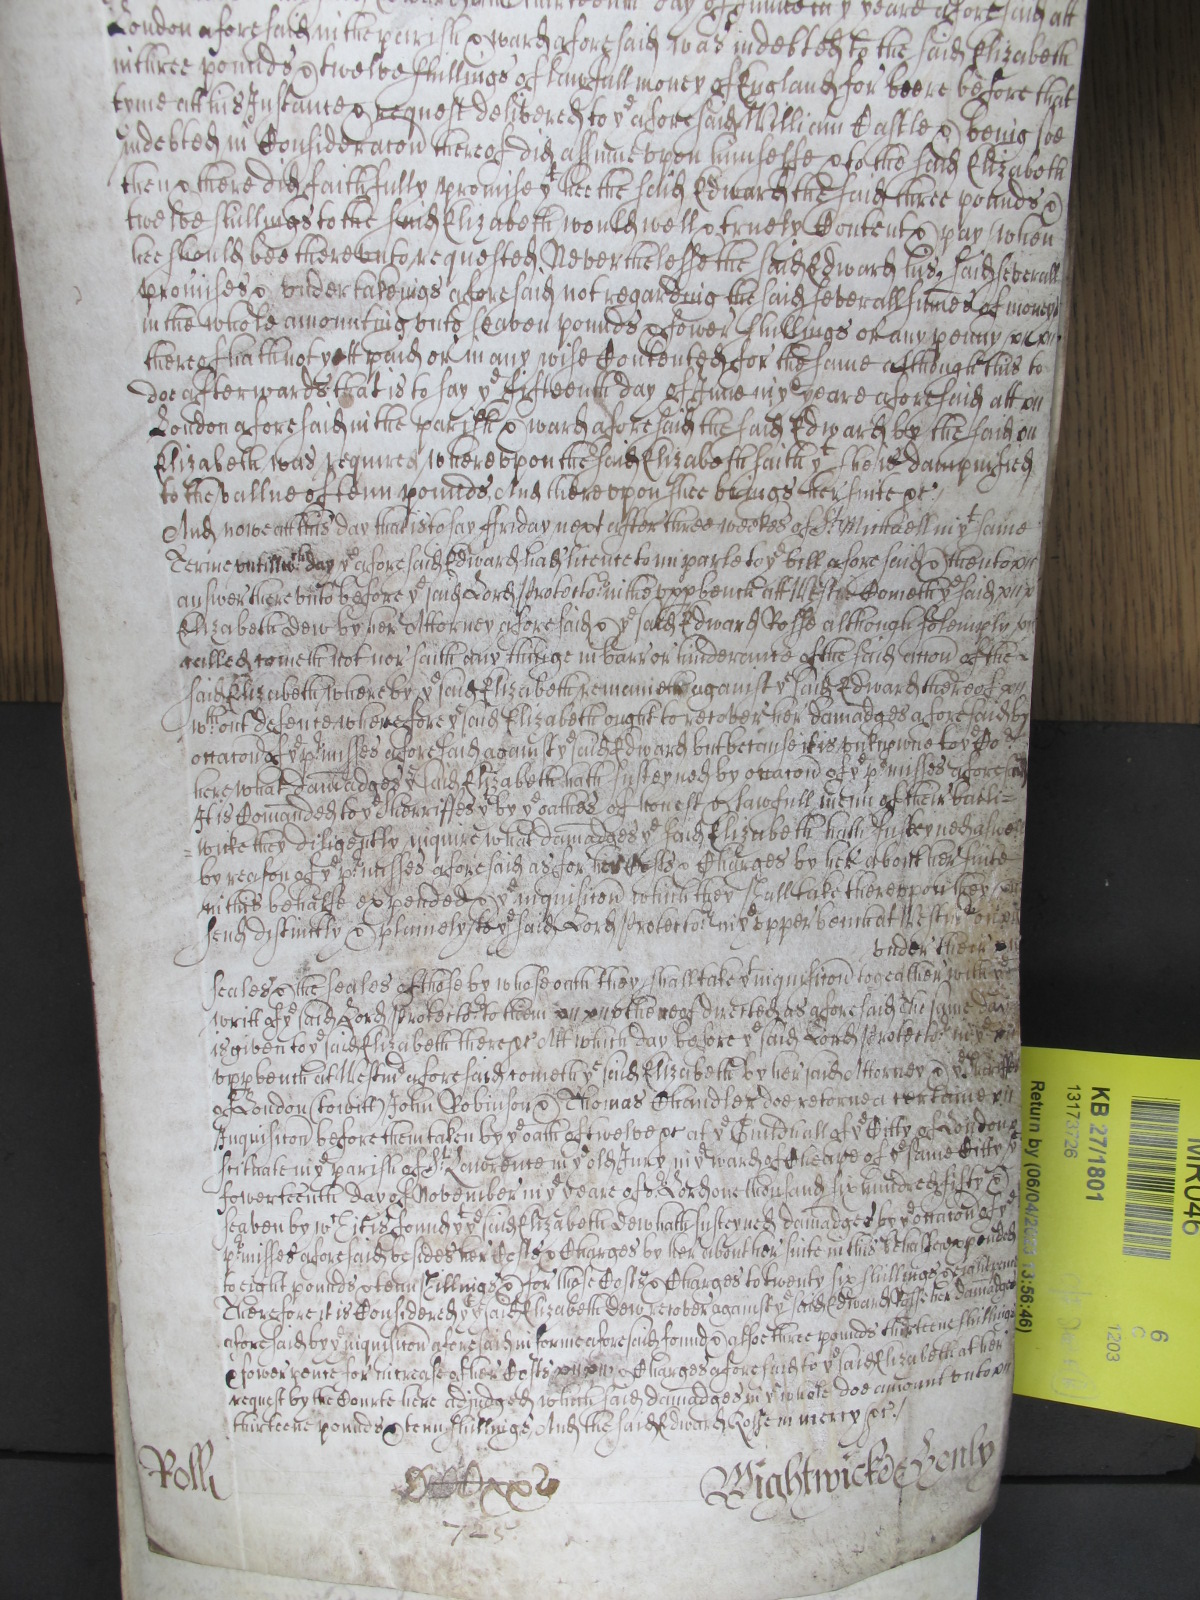 day of June in ye yeare aforesaid att
London aforesaid in the parish & ward aforesaid was indebted to the said Elizabeth
in three pounds & twelve shillings of lawfull money of England for beere before that
tyme att his Instance & request delivered to ye aforesaid William Castle & being soe
indebted in Consideracon thereof did assume upon himselfe & to the said Elizabeth
then & there did faithfully promise yt hee the said Edward the said three pounds &
twelve shillings to the said Elizabeth would well & truely Content & pay when
hee should bee thereunto requested Neverthelesse the said Edward his said severall
promises & undertakeings aforesaid not regarding the said severall summes of money
in the whole amounting unto seaven pounds & fower shillings or any penny
thereof hath not yett paid or in any wise Contented for the same although this to
doe afterwards that is to say ye fifteenth day of June in ye yeare aforesaid att
London aforesaid in the parish & ward aforesaid the said Edward by the said
Elizabeth was required whereupon the said Elizabeth saith yt shee is dampnified
to the vallue of tenn pounds And thereupon shee brings her suite &c
And nowe att this day that is to say ffriday next after three weekes of St Michaell in ye same
Terme untill wch day ye aforesaid Edward had licence to imparle to ye bill aforesaid & then to
answer thereunto before ye said Lord Protector in the upp bench att Westmr Cometh ye said
Elizabeth Dew by her Attorney aforesaid & ye said Edward Rosse although solemply
called cometh not nor saith any thinge in barr or hinderance of the said accon of the
said Elizabeth whereby ye said Elizabeth remaineth against ye said Edward thereof
without defence wherefore ye said Elizabeth ought to recover her damadges aforesaid by
occacon of ye pmisses aforesaid against ye said Edward but because it is unknowne to ye Co
here what damadges ye said Elizabeth hath susteyned by occacon of ye pmisses aforesaid
It is Comanded to ye Sherriffes yt by ye oathes of honest & lawfull menn of their baili=
=wicke they diligently inquire what damadges ye said Elizabeth hath susteyned aswell
by reason of ye pmisses aforesaid as for her Costs & Charges by her about her suite
in this behalfe expended & ye inquisicon which they shall take thereupon they
send distinctly & plainely to ye said Lord Protector in ye upper bench at Westmr
under their
seales & the seales of those by whose oath they shall take ye inquisicon togeather with ye
writt of ye said Lord Protector to them thereof directed as aforesaid the same day
is given to ye said Elizabeth there &c Att which day before ye said Lord Protector in ye
upp bench at Westmr aforesaid cometh ye said Elizabeth by her said Attorney & ye Sherriffes
of London (to witt) John Robinson & Thomas Chandler doe retorne a certaine
Inquisicon before them taken by ye oath of twelve &c at ye Guildhall of ye Citty of London
scituate in ye parish of St Lawrence in ye old Jury in ye ward of Cheape of ye same Citty ye
fowerteenth day of November in ye yeare of or Lord one thousand six hundred fifty &
seaven by wch it is found yt ye said Elizabeth Dew hath susteyned damadges by ye occacon of ye
pmisses aforesaid besides her Costs & Charges by her about her suite in this behalfe expended
to eight pounds & tenn shillings & for those Costs & Charges to twenty six shillings & eight pence
Therefore it is Considered yt ye said Elizabeth Dew recover against ye said Edward Rosse her damadges
aforesaid by ye inquisicon aforesaid in forme aforesaid found & alsoe three pounds thirteene shillings
& fower pence for increase of her Costs & Charges aforesaid to ye said Elizabeth at her
request by the Courte here adjudged which said damadges in ye whole doe amount unto
thirteene pounds & tenn shillings And the said Edward Rosse in mercy &c
Rolls
Wightwicke & Henly
725
MR046
KB 27/1801
13173726
Return by (06/04/2023 13:56:46)
1203
6